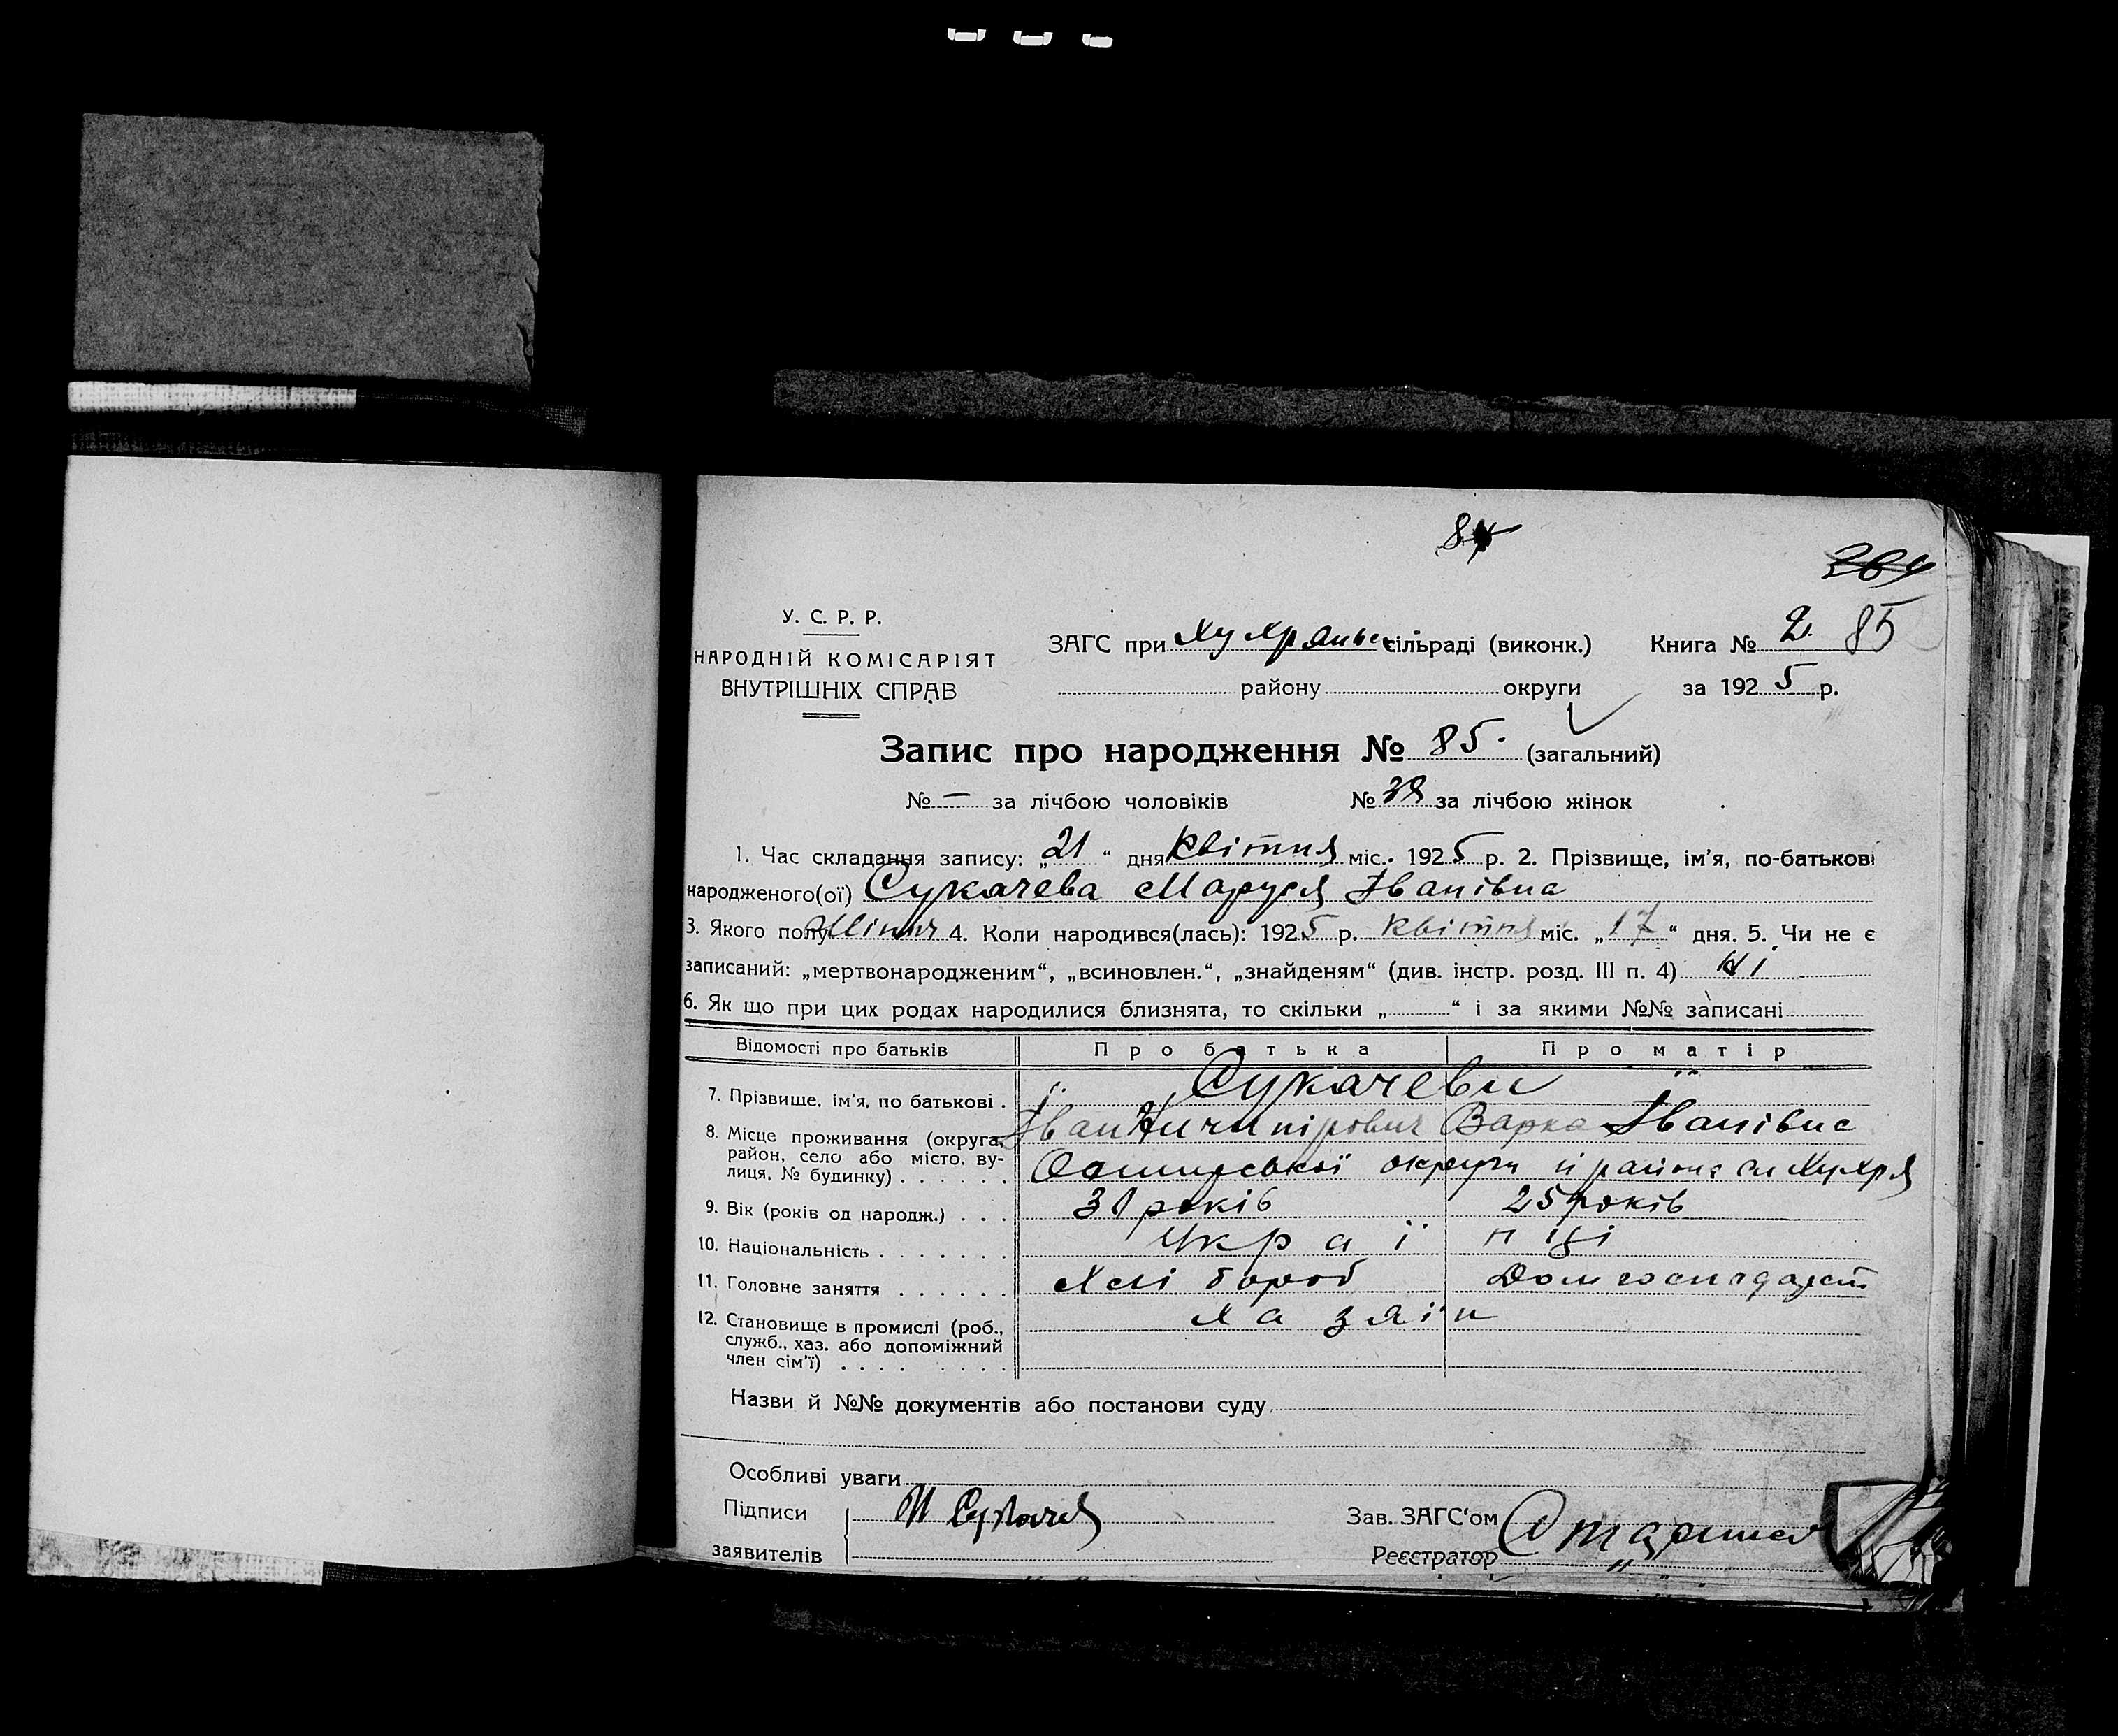 84
264
У. С. Р. Р.
НАРОДНІЙ КОМІСАРІЯТ
ВНУТРІШНІХ СПРАВ
ЗАГС при Хухрянськ сільраді (виконк.) Книга № 2. 85
району округи за 1925 р.
Запис про народження № 85. (загальний)
№ — за лічбою чоловіків № 39 за лічбою жінок
1. Час складання запису: „21“ дня квітня міс. 1925 р. 2. Прізвище, ім'я, по-батькові
народженого(ої) Сукачева Маруся Іванівна
3. Якого полу жіноч 4. Коли народився(лась): 1925 р. квітня міс. „17“ дня. 5. Чи не є
записаний: „мертвонародженим“, „всиновлен.“, „знайденям“ (див. інстр. розд. III п. 4) Ні
6. Як що при цих родах народилися близнята, то скільки „ “ і за якими №№ записані
Відомості про батьків Про батька Про матір
7. Прізвище, ім'я, по батькові . Сукачеви
Іван Ничипірович Варка Іванівна
8. Місце проживання (округа, район, село або місто, вулиця, № будинку) . . . . . . округи й района Хухря
9. Вік (років од народж.) . . . 31 років 25 років
10. Національність . . . . . . . Украї нці
11. Головне заняття . . . . . . Хлібороб Дом господарст
12. Становище в промислі (роб., служб., хаз. або допоміжний член сім'ї) . . . . . . . . Хазяїн
Назви й №№ документів або постанови суду
Особливі уваги
Підписи
заявителів
И Сукачев
Зав. ЗАГС'ом
Реєстратор